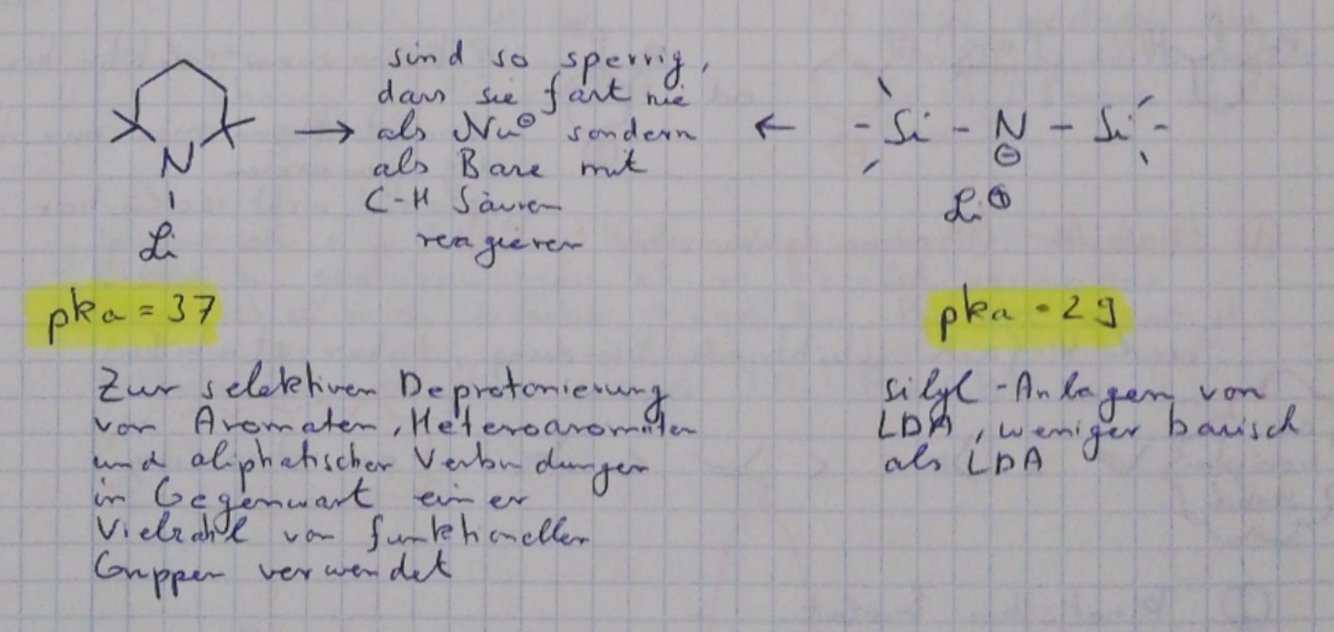 sind so sperrig,
dass sie fast nie
als Nu⊖ sondern
als Base mit
C-H Säuren
reagieren
N
Li
- Si - N - Si -
⊖
Li⊕
pka = 37
pka = 29
Zur selektiven Deprotonierung
von Aromaten, Heteroaromaten
und aliphatischer Verbindungen
in Gegenwart einer
Vielzahl von funktionellen
Gruppen verwendet
Silyl - Anlagen von
LDA, weniger basisch
als LDA